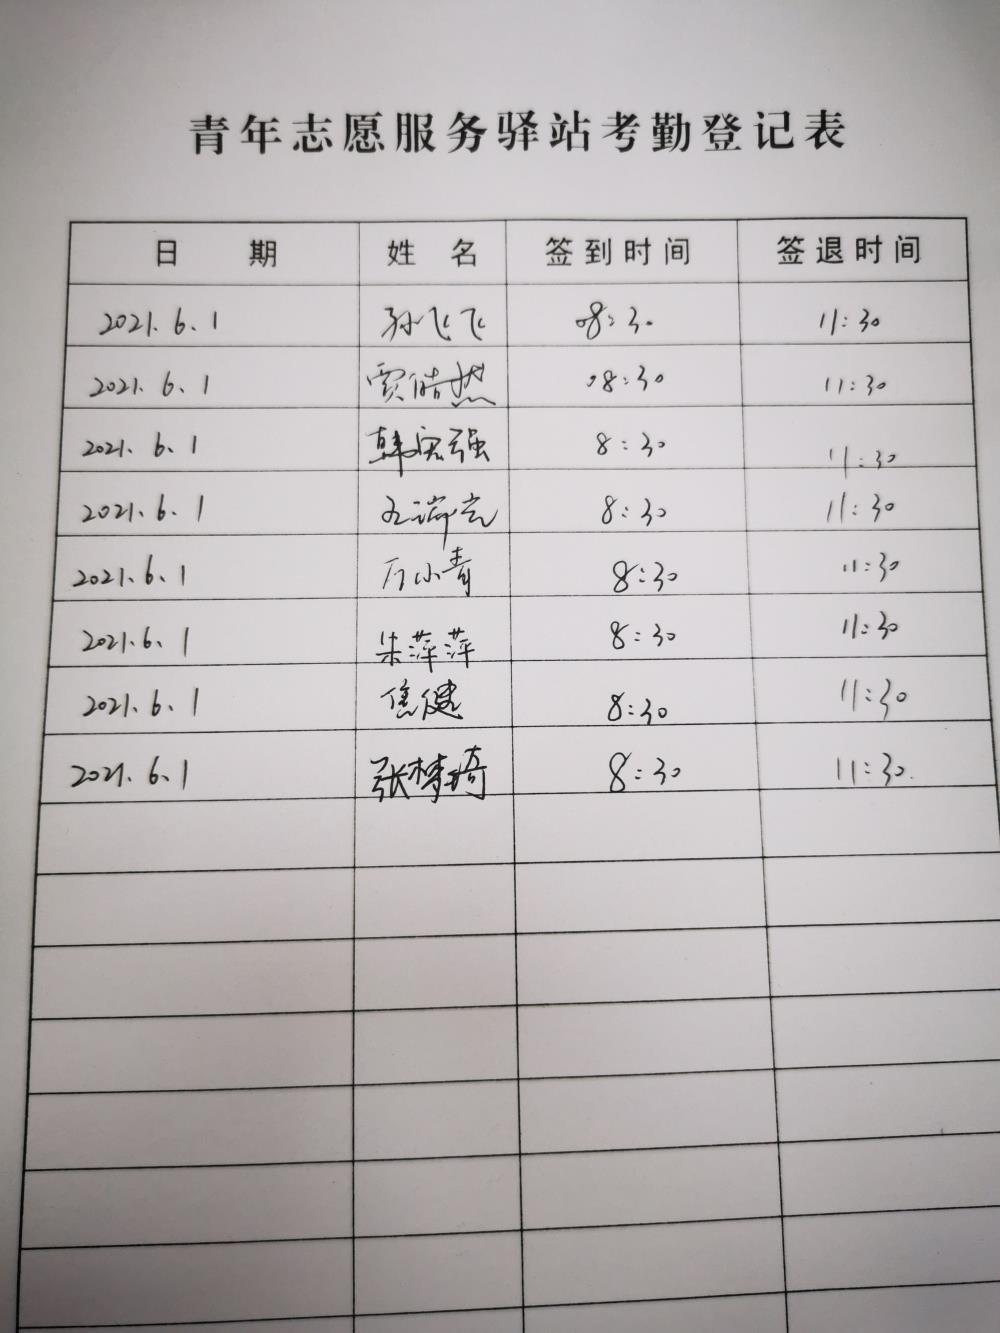 青年志愿服务驿站考勤登记表
日 期 姓 名 签到时间 签退时间
2021.6.1 孙飞飞 08:30 11:30
2021.6.1 贾皓然 08:30 11:30
2021.6.1 韩宏强 8:30 11:30
2021.6.1 8:30 11:30
2021.6.1 小青 8:30 11:30
2021.6.1 朱萍萍 8:30 11:30
2021.6.1 焦健 8:30 11:30
2021.6.1 张梦琦 8:30 11:30